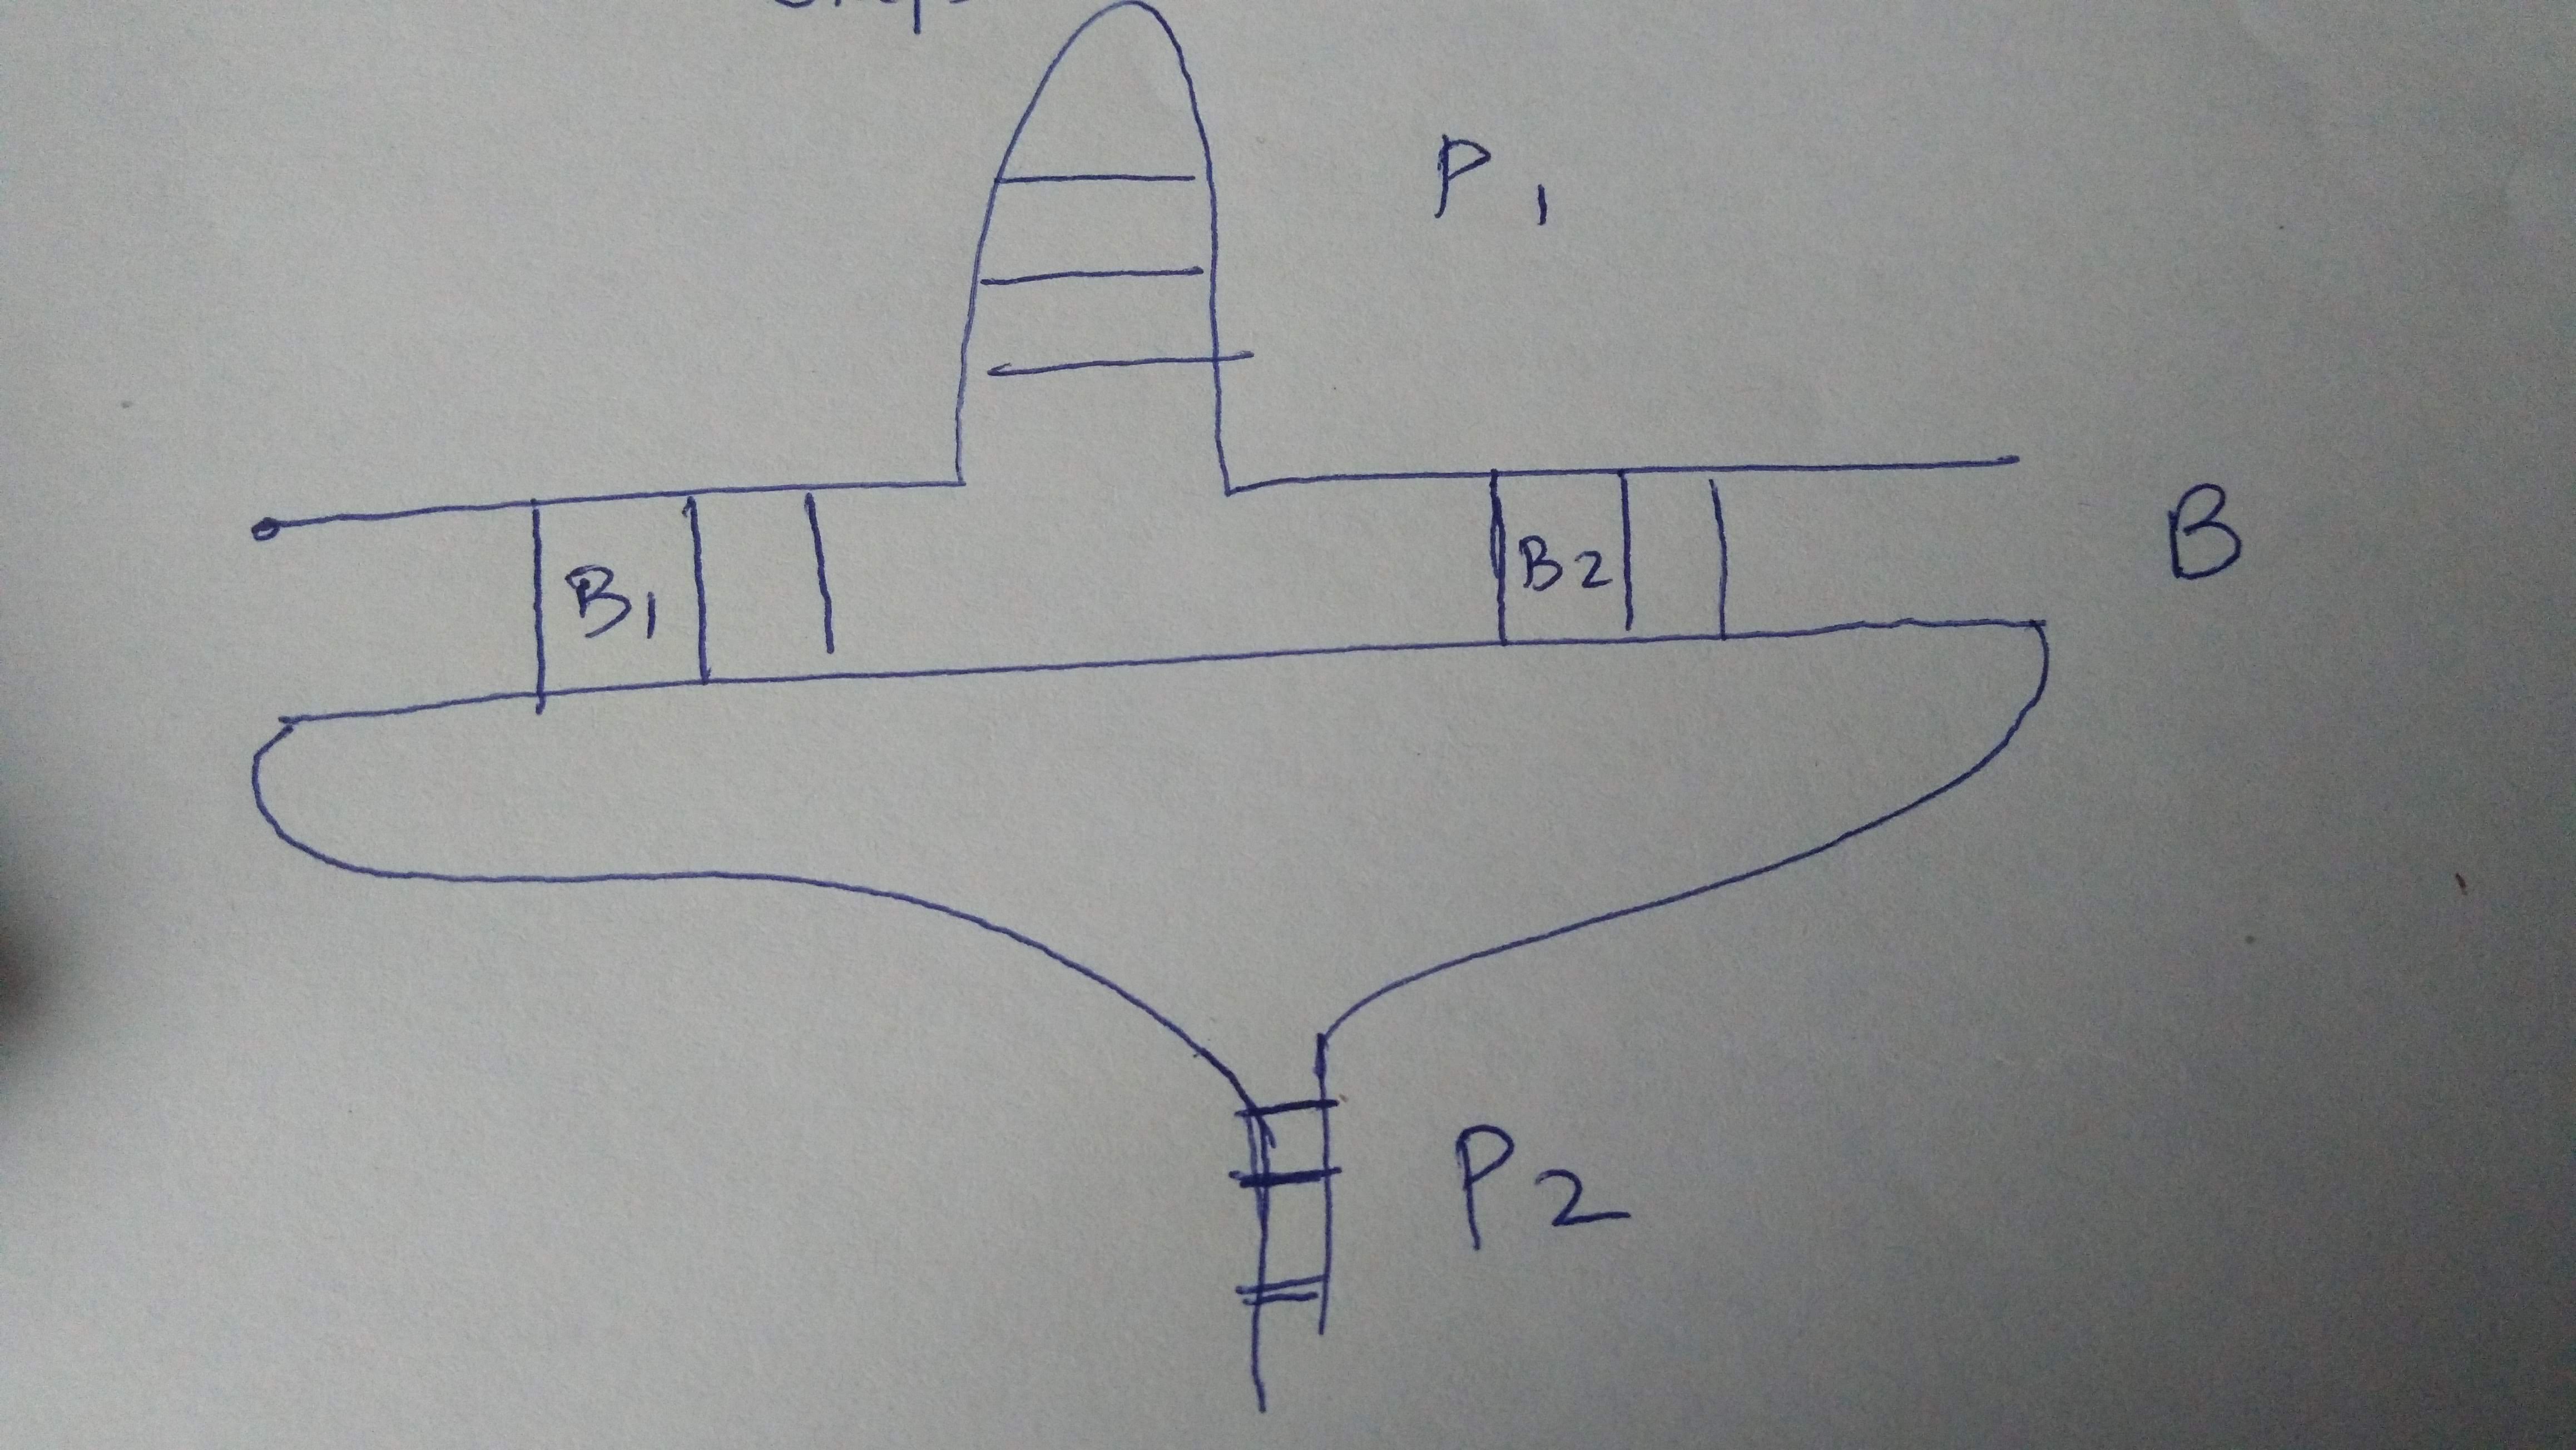 P1
B1
B2
B
P2